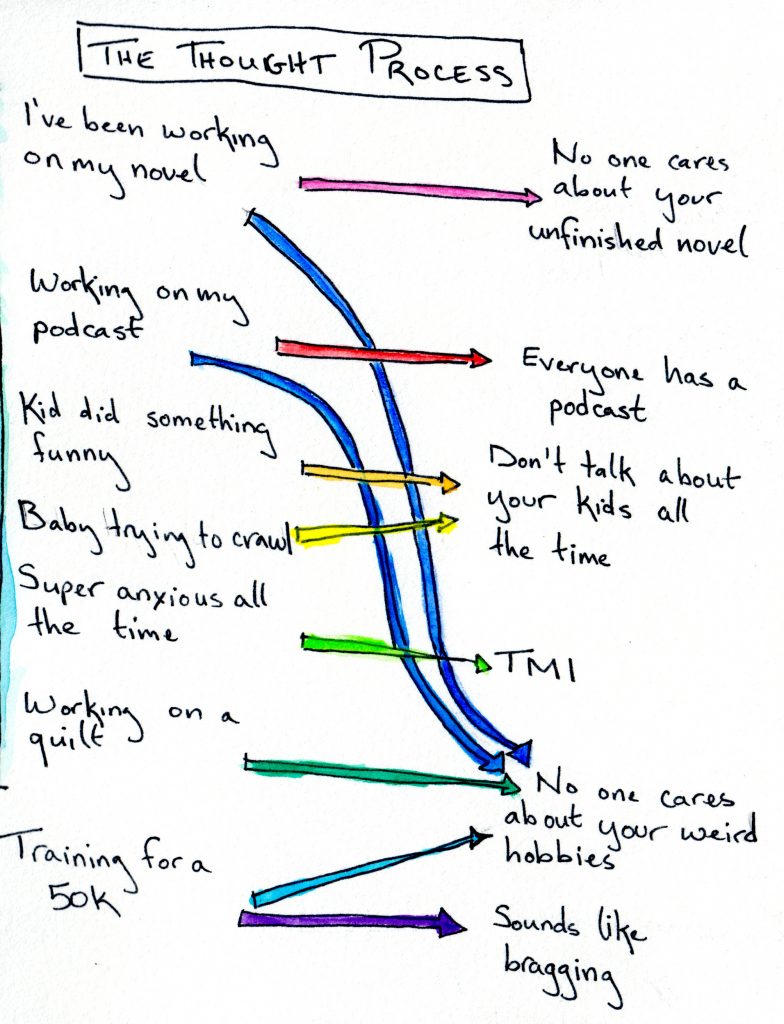 THE THOUGHT PROCESS
I've been working
on my novel
No one cares
about your
unfinished novel
Working on my
podcast
Everyone has a
podcast
Kid did something
funny
Baby trying to crawl
Don't talk about
your kids all
the time
Super anxious all
the time
TMI
Working on a
quilt
No one cares
about your weird
hobbies
Training for a
50K
Sounds like
bragging